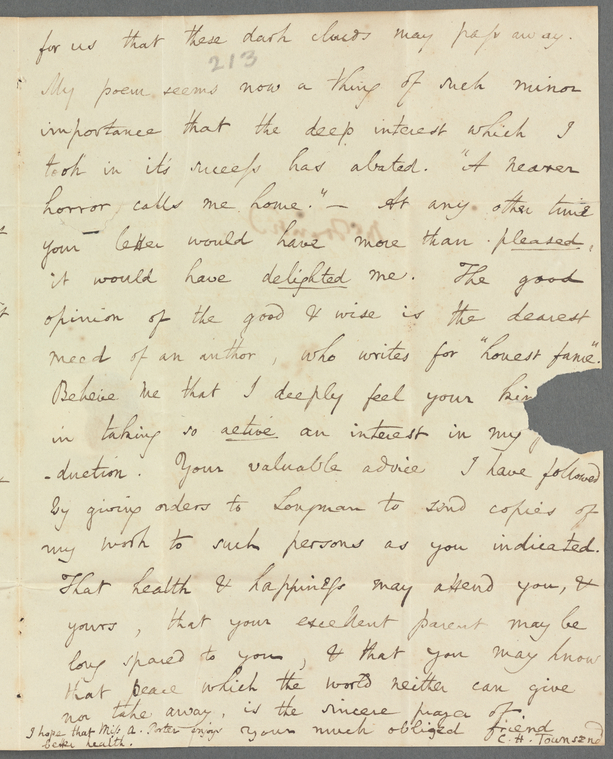 for us that these dark clouds may pass away.
213
My poem seems now a thing of such minor
importance that the deep interest which I
took in it's success has abated. "A nearer
horror calls me home." — At any other time
your letter would have more than pleased,
it would have delighted me. The good
opinion of the good & wise is the dearest
meed of an author, who writes for "honest fame".
Believe me that I deeply feel your kin
in taking so active an interest in my
-duction. Your valuable advice I have followed
by giving orders to Longman to send copies of
my work to such persons as you indicated.
That health & happiness may attend you, &
yours, that your excellent parent may be
long spared to you, & that you may know
that peace which the world neither can give
nor take away, is the sincere prayer of
your much obliged friend
C. H. Townsend
I hope that Miss A. Porter enjoys
better health.